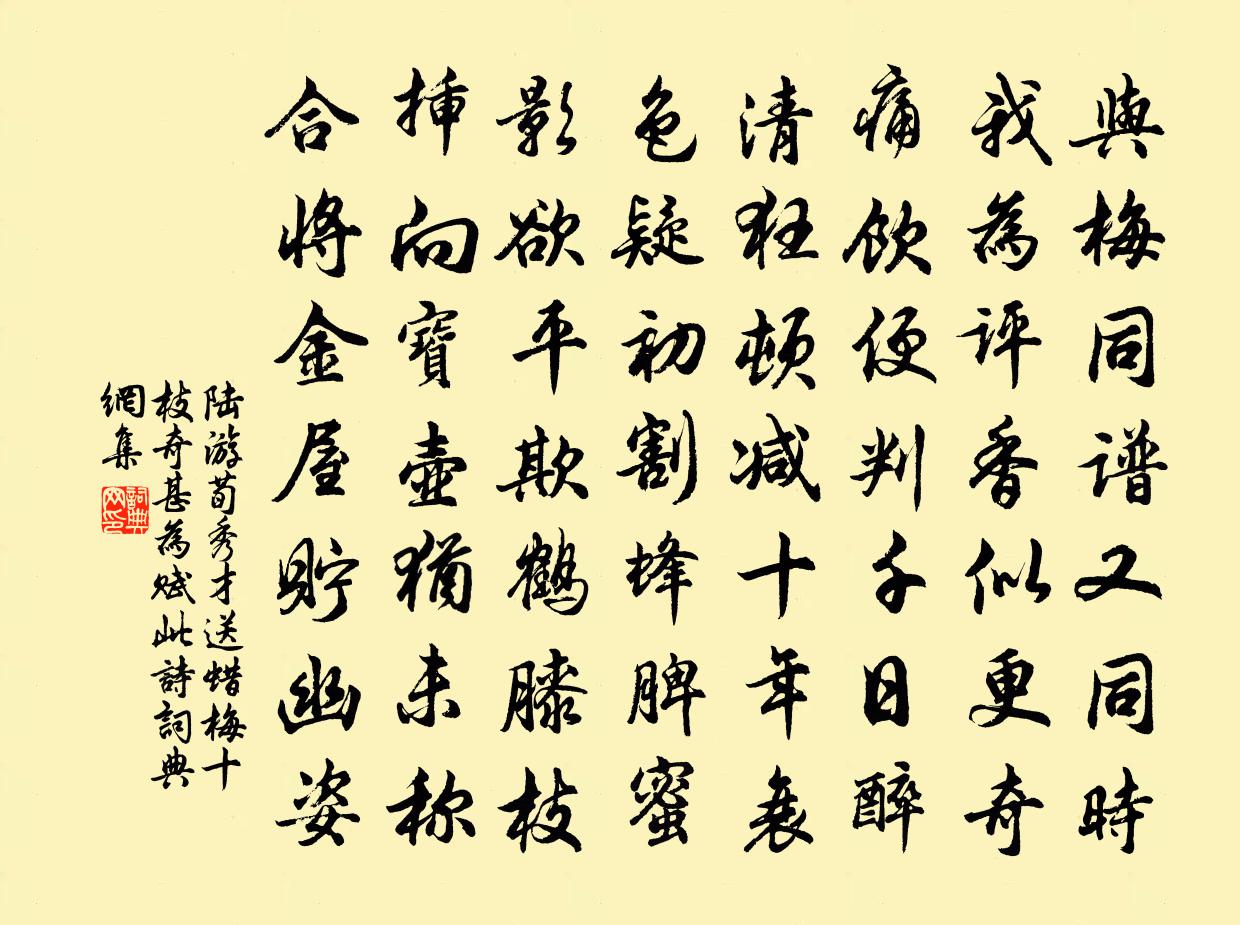 與梅同谱又同時
我為评香似更奇
痛飲便判千日醉
清狂頓减十年衰
色疑初割蜂脾蜜
影欲平欺鹤膝枝
挿向寶壺猶未称
合将金屋貯幽姿
陆游荀秀才送蜡梅十
枝奇甚為赋此詩詞典
網集
詞典
网印